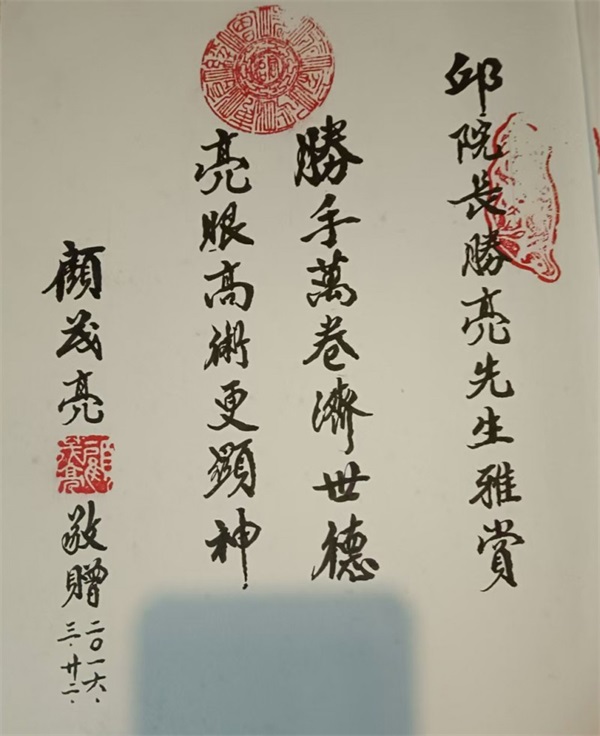 邱院長勝亮先生雅賞
勝手萬卷濟世德
亮眼高術更顯神
顧茂亮
敬贈
二〇一六、
三、廿二、